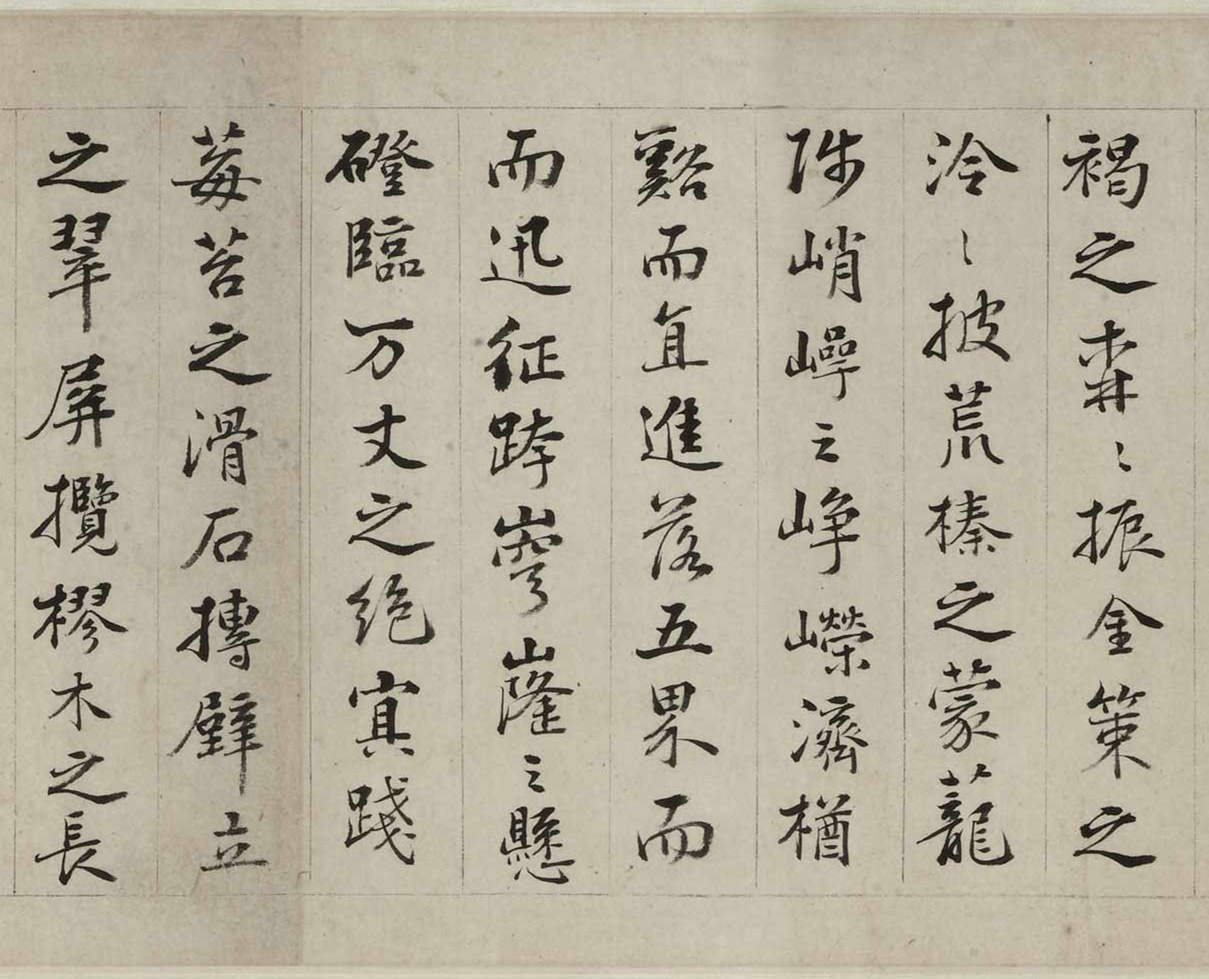 褐之森〻振金策之
泠〻披荒榛之蒙蘢
陟峭崿之崢嶸濟楢
谿而直進落五界而
而迅征跨穹嶐之懸
磴臨万丈之絶冥踐
莓苔之滑石搏壁立
之翠屏攬樛木之長